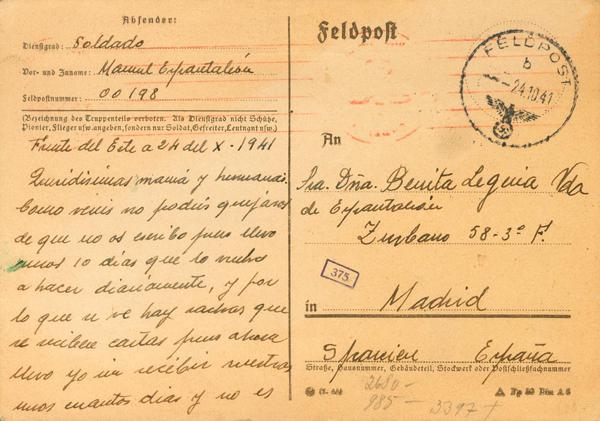 Absender:
Dienstgrad: Soldado
Vor- und Zuname: Manuel Espantaleón
Feldpostnummer: 00198
(Bezeichnung des Truppenteils verboten. Als Dienstgrad nicht Schütze,
Pionier, Flieger usw. angeben, sondern nur Soldat, Gefreiter, Leutnant usw.)
Frente del Este a 24 del X - 1941
Queridisimas mamá y hermanas.
Como veis no podéis quejaros
de que no os escribo pues llevo
unos 10 dias que lo vuelvo
a hacer diariamente, y por
lo que se ve hay rachas que
se reciben cartas pues ahora
llevo yo sin recibir vuestras
unos cuantos dias y no es
Feldpost
FELDPOST
b
24.10.41
An
Sra. Dña. Benita Leguia Vda
de Espantaleón
Zurbano 58-3º F.
375
in Madrid
Spanien España
Straße, Hausnummer, Gebäudeteil, Stockwerk oder Postschließfachnummer
2680-
985- 3397+
Din A 6